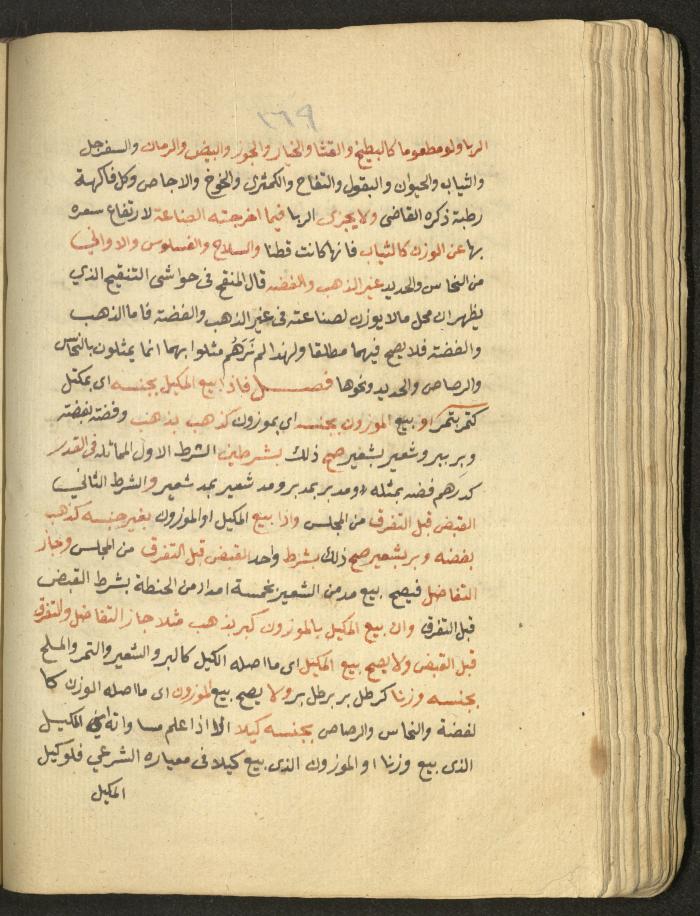 ١٦٩
الربا ولو مطعوما كالبطيخ والقثا والخيار والجوز والبيض والرمان والسفرجل
والثياب والحيوان والبقول والتفاح والكمثرى والخوخ والاجاص وكل فاكهة
رطبة ذكره القاضى ولا يجرى الربا فيما اخرجته الصناعة لارتفاع سعره
بها عن الوزن كالثياب فانها كانت قطنا والسلاح والفسلوس والاوانى
من النحاس والحديد غير الذهب والفضه قال المنقح فى حواشى التنقيح الذي
يظهر ان محل مالا يوزن لصناعته فى غير الذهب والفضة فاما الذهب
والفضة فلا يصح فيهما مطلقا ولهذا لم نَرَهُم مثلوا بهما انما يمثلون بالنحاس
والرصاص والحديد ونحوها فصل فاذا بيع المكيل بجنسه اى بمكيل
كتمر بتمر او بيع الموزون بجنسه اى بموزون كذهب بذهب وفضة بفضة
وبر ببر وشعير بشعير صح ذلك بشرطين الشرط الاول المماثلة فى القدر
كدرهم فضه بمثله ومد بر بمد بر ومد شعير بمد شعير والشرط الثاني
القبض قبل التفرق من المجلس واذا بيع المكيل او الموزون بغير جنسه كذهب
بفضه وبر بشعير صح ذلك بشرط واحد القبض قبل التفرق من المجلس وجاز
التفاضل فيصح بيع مد من الشعير بخمسة امداد من الحنطة بشرط القبض
قبل التفرق وان بيع المكيل بالموزون كبر بذهب مثلا جاز التفاضل والتفرق
قبل القبض ولا يصح بيع المكيل اى ما اصله الكيل كالبر والشعير والتمر والملح
بجنسه وزنا كرطل بر برطل بر ولا يصح بيع الموزون اى ما اصله الوزن كا
لفضة والنحاس والرصاص بجنسه كيلا الا اذا علم مساواته اى الكيل
الذى بيع وزنا او الموزون الذى بيع كيلا فى معياره الشرعي فلو كيل
المكيل